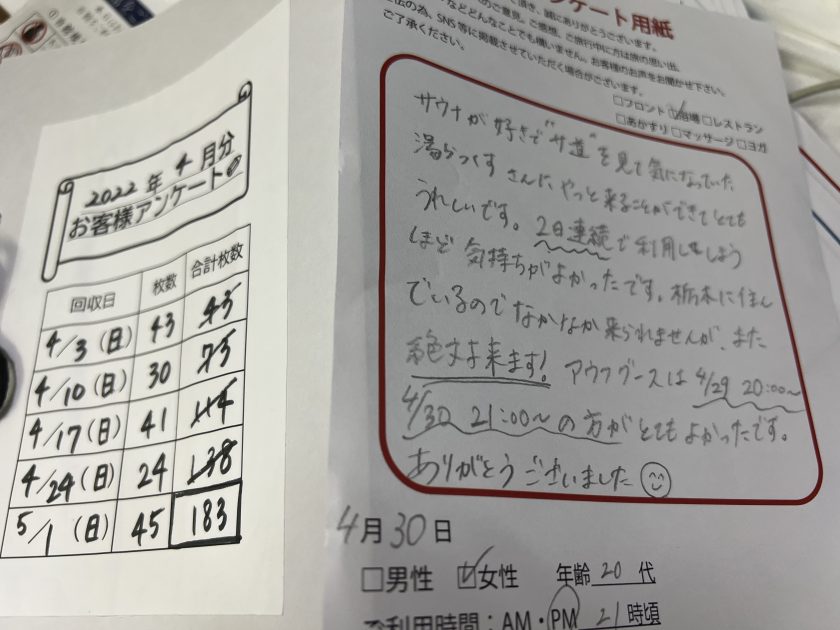 2022年 4月分
お客様アンケート
回収日 枚数 合計枚数
4/3（日） 43 43
4/10（日） 30 73
4/17（日） 41 114
4/24（日） 24 138
5/1（日） 45 183
ンケート用紙
誠にありがとうございます。
のご意見、ご感想、ご旅行中に方は旅の思い出、
などどんなことでも構いません。お客様のお声をお聞かせ下さい。
の為、SNS等に掲載させていただく場合がございます。
ご了承ください。
□フロント ☑浴場 □レストラン
□あかすり □マッサージ □ヨガ
サウナが好きで"サ道"を見て気になっていた
湯らっくすさんにやっと来ることができてとても
うれしいです。2日連続で利用しましょう
ほど気持ちがよかったです。栃木に住ん
でいるのでなかなか来られませんが、また
絶対来ます! アウフグースは 4/29 20:00〜
4/30 21:00〜の方がとてもよかったです。
ありがとうございました
4月30日
□男性 ☑女性 年齢 20 代
ご利用時間：AM・PM 21時頃